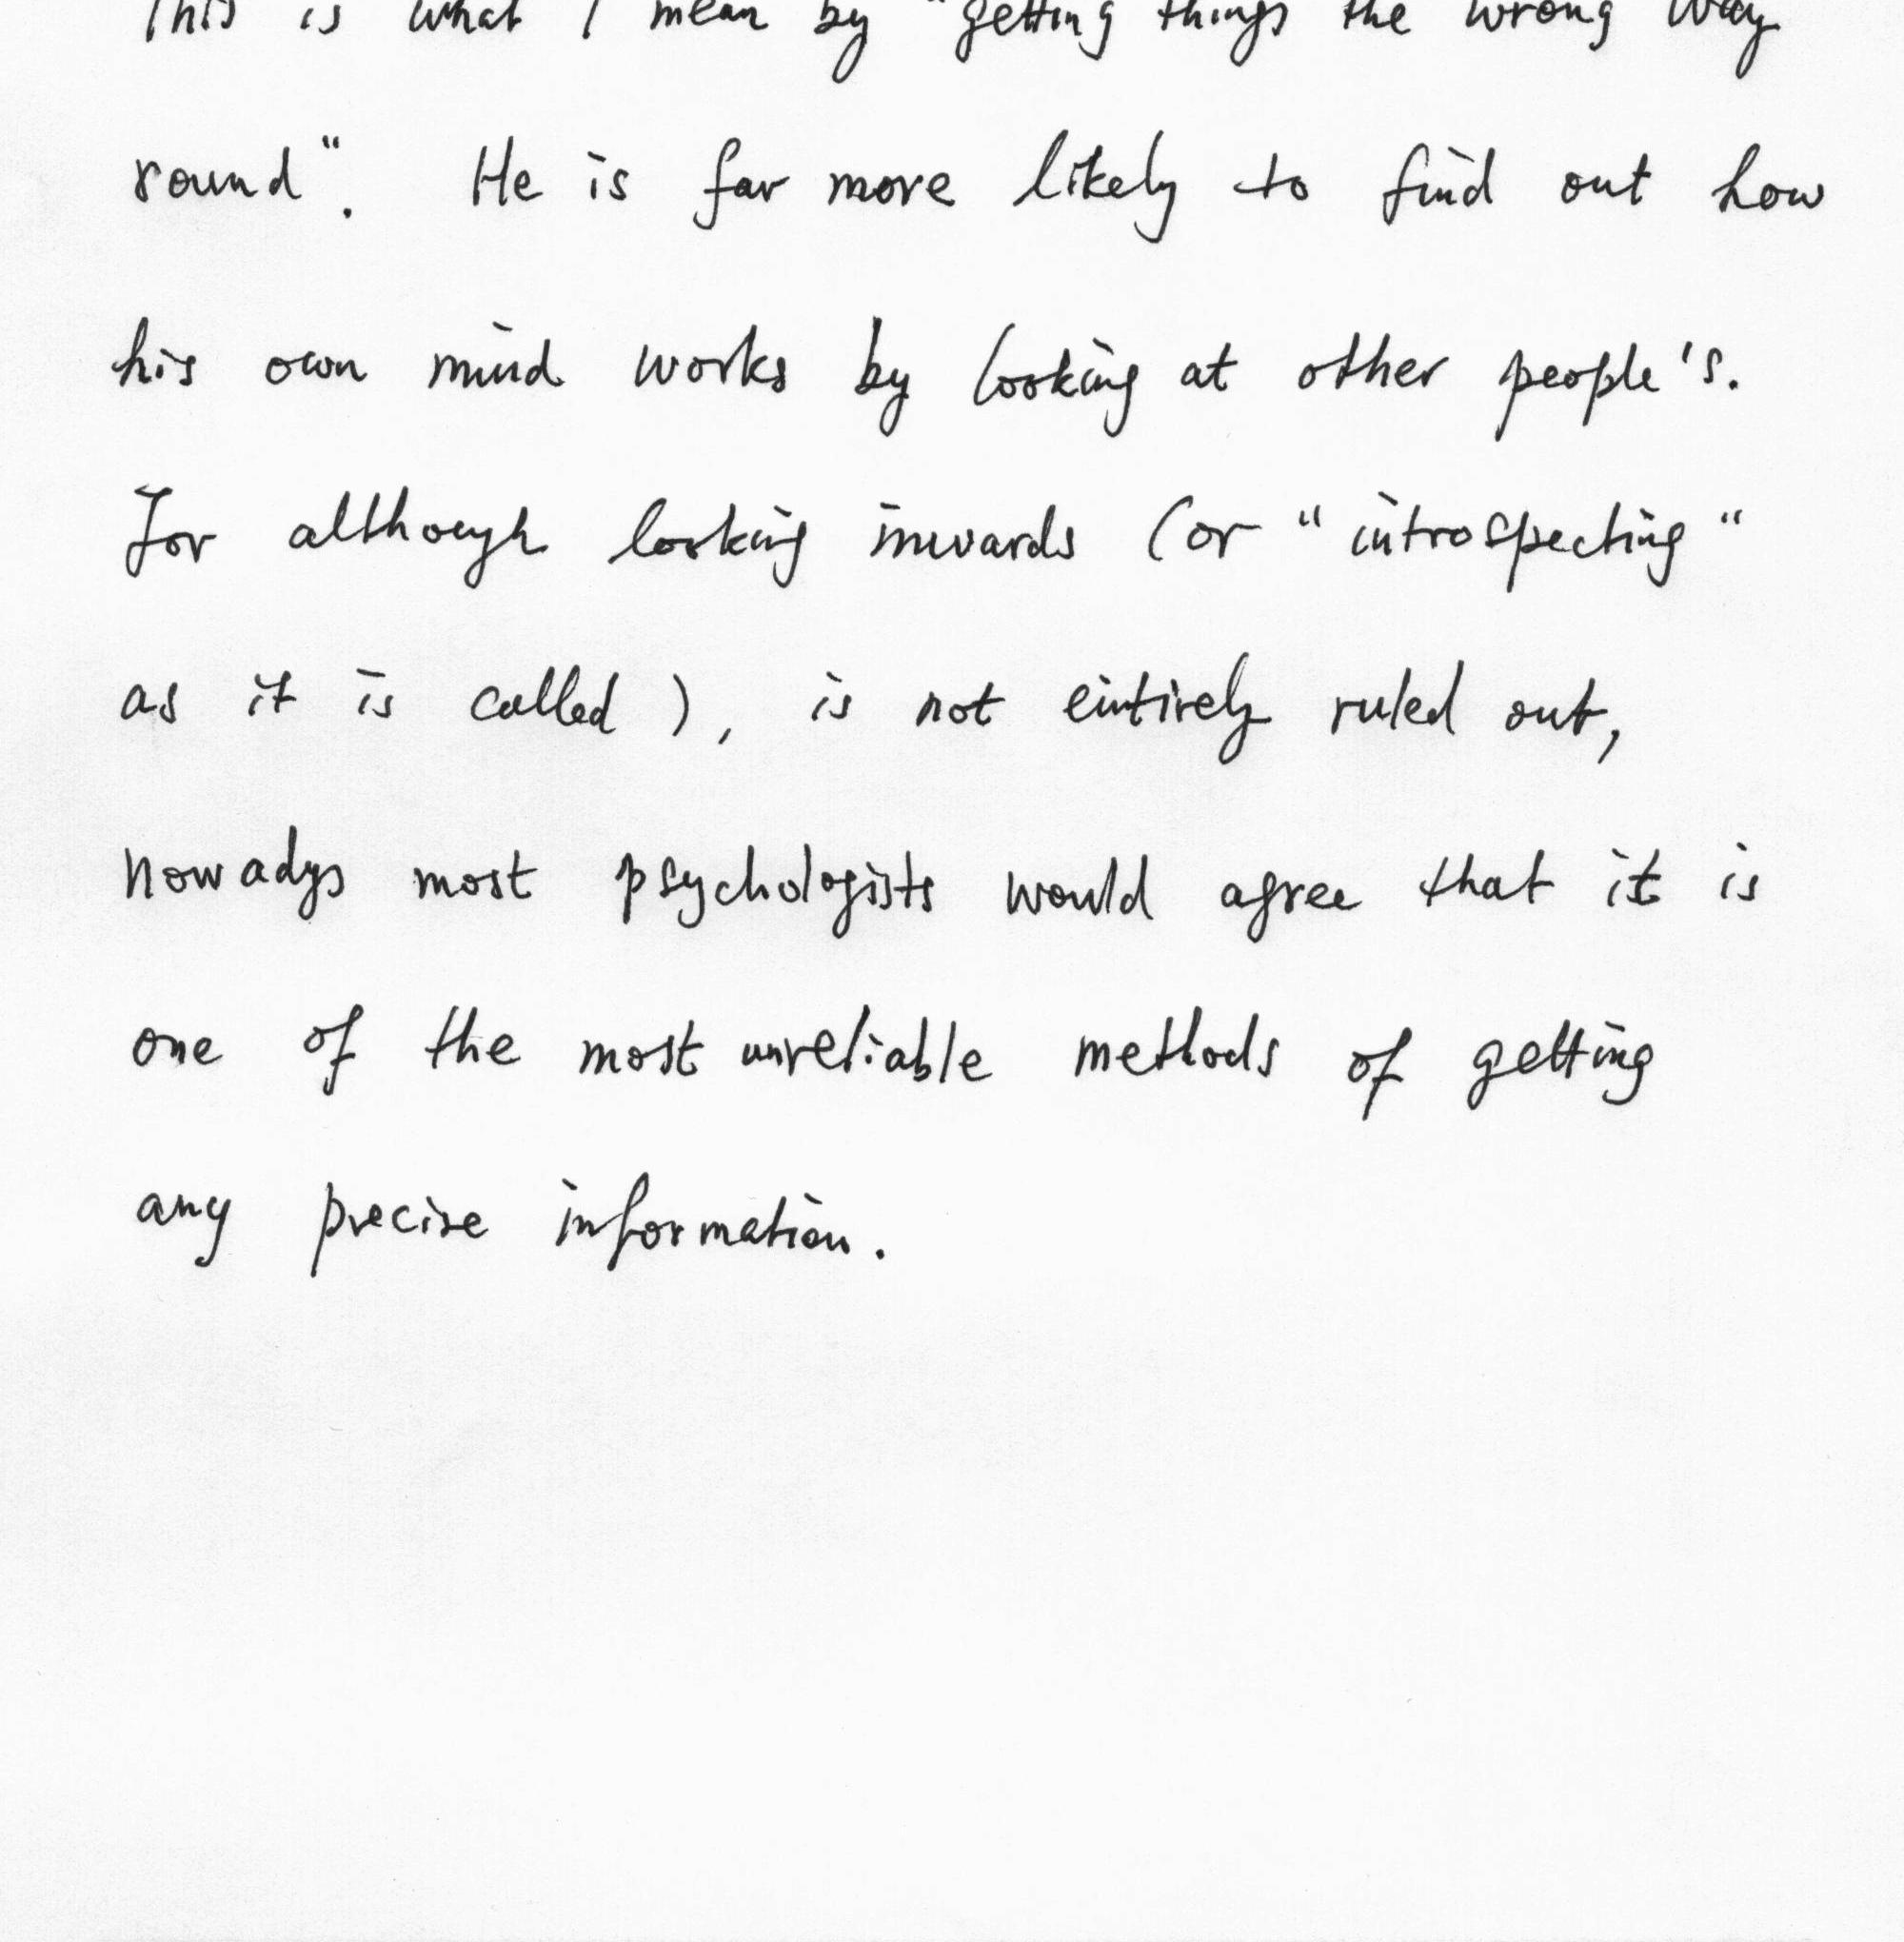 This is what I mean by "getting things the wrong way
round". He is far more likely to find out how
his own mind works by looking at other people's.
For although looking inwards (or "introspecting"
as it is called), is not eintirely ruled out,
nowadys most psychologists would agree that it is
one of the most unreliable methods of getting
any precise information.